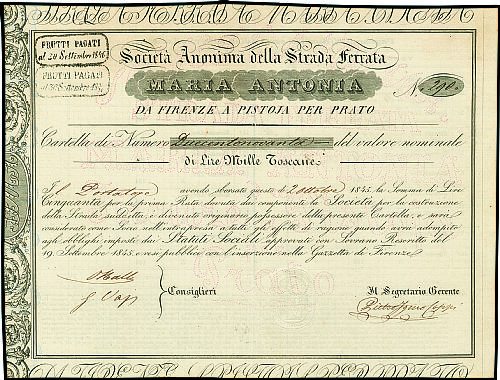 FRUTTI PAGATI
al 20 Settembre 1846
FRUTTI PAGATI
al 30 Settembre 184
Società Anonima della Strada Ferrata
MARIA ANTONIA
N. 290.
DA FIRENZE A PISTOIA PER PRATO
Cartella di Numero Duecentonovanta del valore nominale
di Lire Mille Toscane.
Il Portatore avendo sborsato questo dì 2 Ottobre 1845. la Somma di Lire
Cinquanta per la prima Rata dovuta dai componenti la Società per la costruzione
della Strada suddetta, è divenuto originario possessore della presente Cartella, e sarà
considerato come Socio nell'intrapresa a tutti gli effetti di ragione quando avrà adempito
agli obblighi imposti dai Statuti Sociali approvati con Sovrano Rescritto del
19. Settembre 1845. e resi pubblici con l'inserzione nella Gazzetta di Firenze
Consiglieri
Il Segretario Gerente